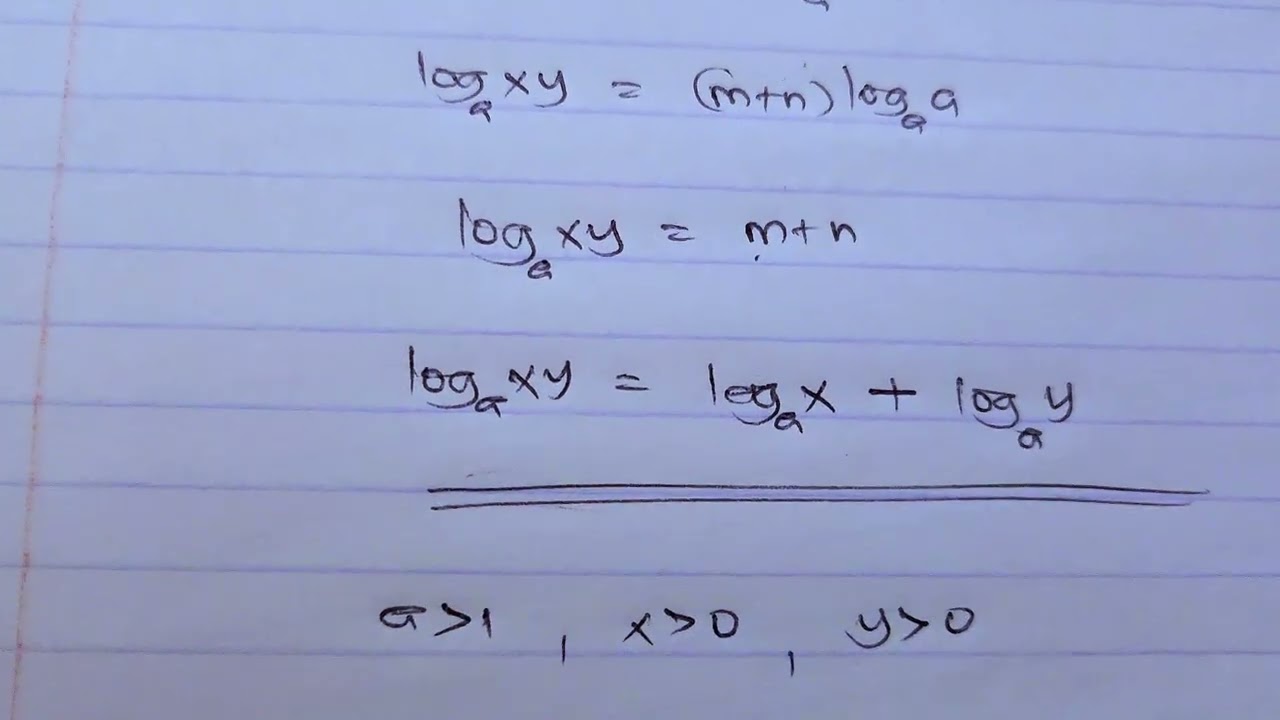 logₐ xy = (m+n) logₐ a
logₐ xy = m+n
logₐ xy = logₐ x + logₐ y
a>1 , x>0 , y>0